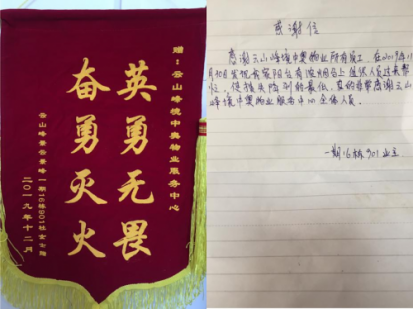 赠：云山峰境中奥物业服务中心
英勇无畏
奋勇灭火
云山峰景峰一期16栋901杜女士赠
二〇一九年十二月
感谢信
感谢云山峰境中奥物业所有员工，在2019年11
月30日发现我家阳台有
，使损失降到的最低，真的非常感谢云山
峰境中奥物业服务中心全体人员。
一期16栋901业主